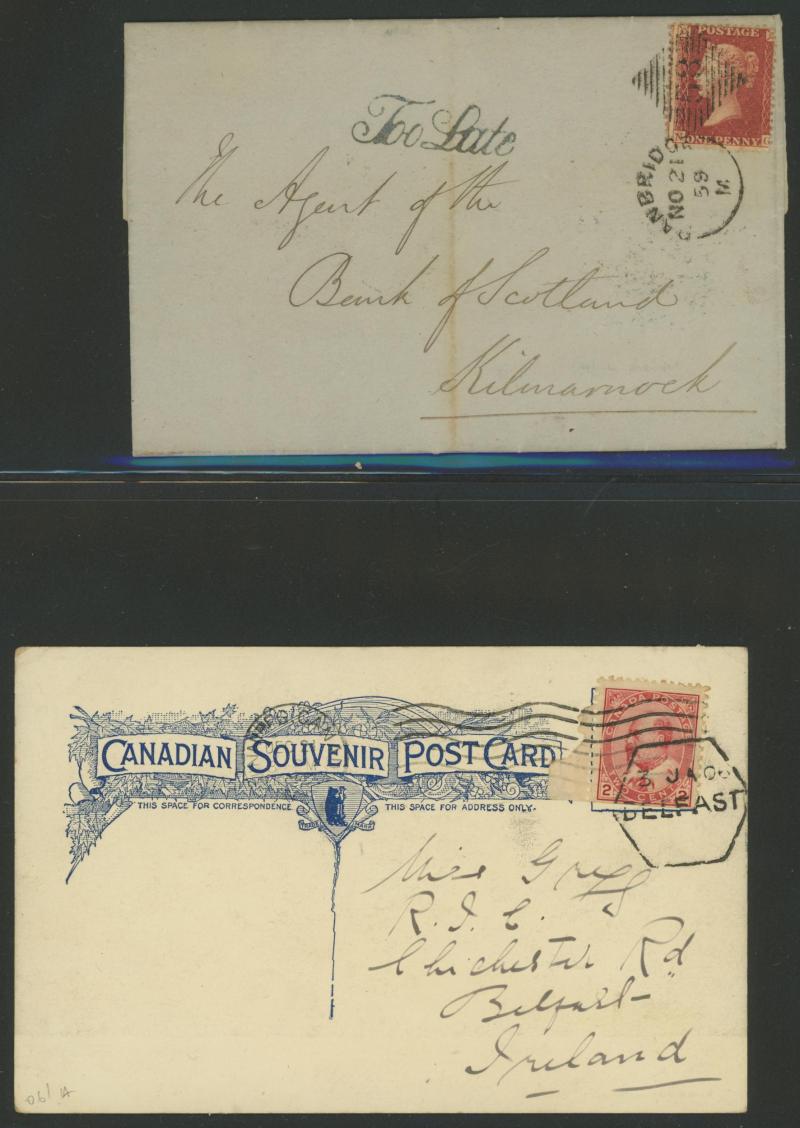 POSTAGE
ONE PENNY
Too Late
BANBRIDGE
NO 21
59
M
The Agent of the
Bank of Scotland
Kilmarnock
CANADA POSTAGE
2 CENTS 2
CANADIAN SOUVENIR POST CARD
THIS SPACE FOR CORRESPONDENCE THIS SPACE FOR ADDRESS ONLY.
TRADE MARK
3 JA 06
BELFAST
Miss Gregg
R.I.C.
Chichester Rd
Belfast
Ireland